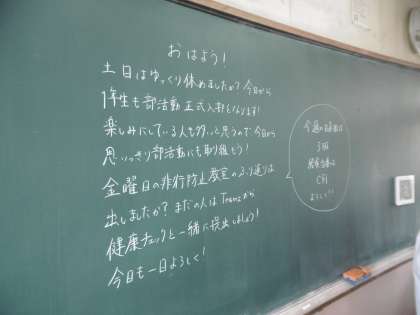 おはよう!
土日はゆっくり休めましたか?今日から
1年生も部活動正式入部となります!
楽しみにしている人も多いと思うので今日から
思いっきり部活動にも取り組もう!
金曜日の非行防止教室のふり返りは
出しましたか?まだの人はTeamsから
健康チェックと一緒に提出しましょう!
今日も一日よろしく!
今週の
3班
給食当番は
C班
よろしく!